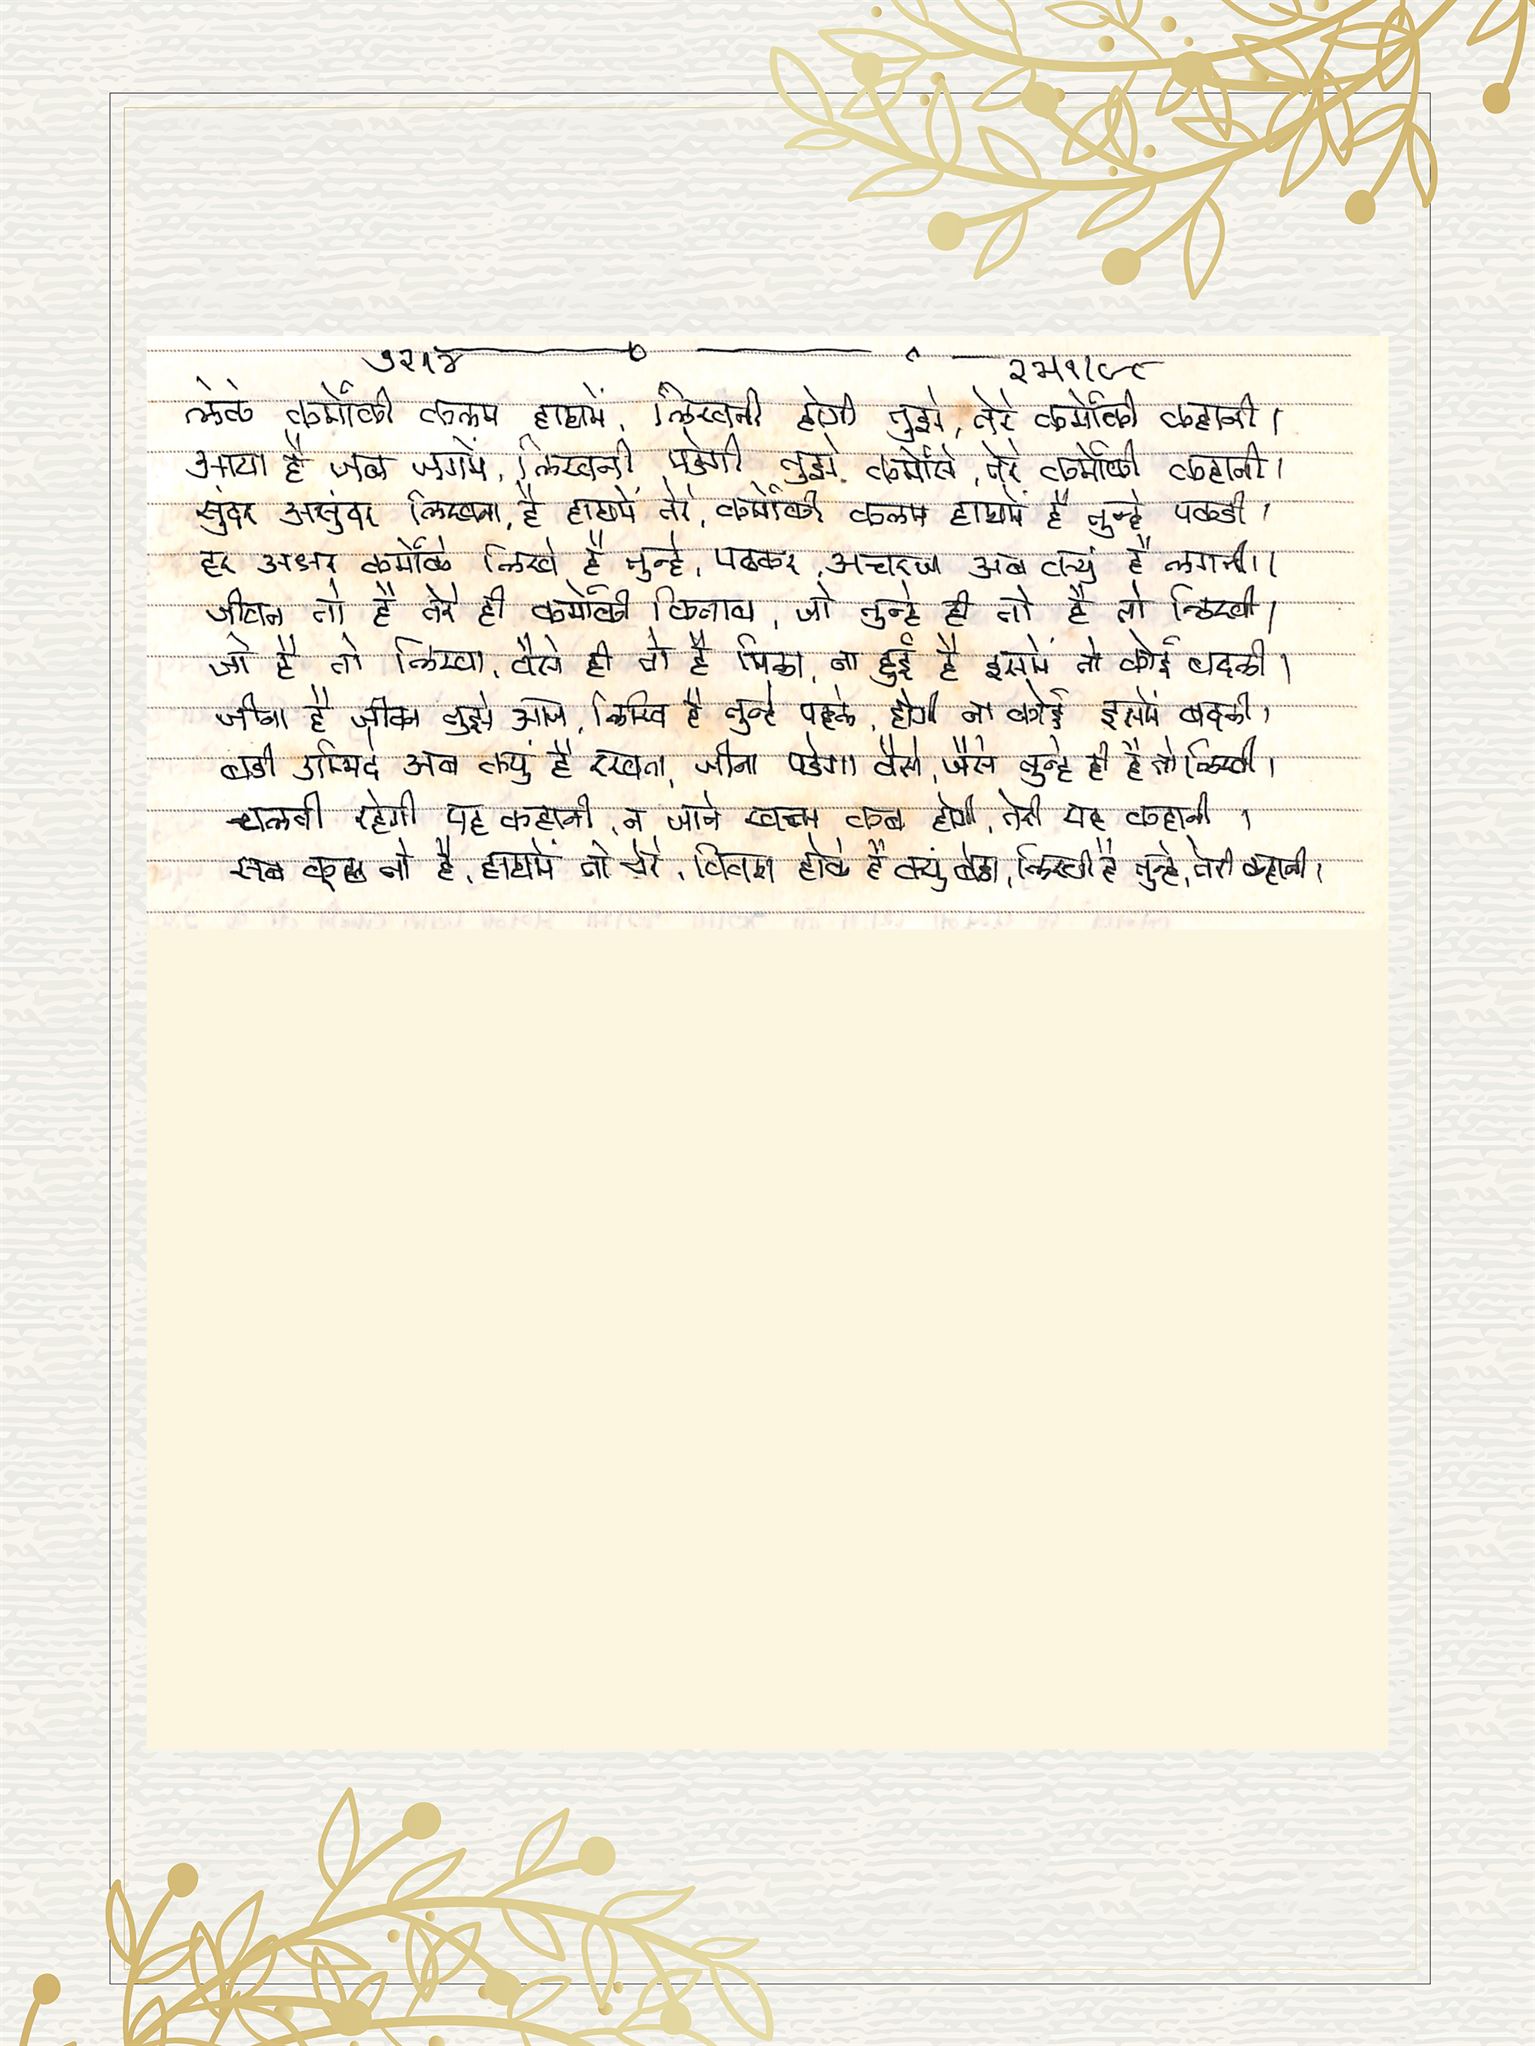 ७२१४
लेके कर्मोंकी कलम हाथमें, लिखनी होगी तुझे, तेरे कर्मोंकी कहानी।
आया है जब जगमें, लिखनी पडेगी तुझे कर्मोसे, तेरे कर्मोंकी कहानी।
सुंदर असुंदर लिखना, है हाथमें तेरे, कर्मोंकी कलम हाथमें है तुन्हे पकडी।
हर अक्षर कर्मोंके लिखे है तुन्हे, पढकर, अचरज अब क्युं है लगती।।
जीवन तो है तेरे ही कर्मोंकी किताब, जो तुन्हे ही तो है तो लिखी।
जो है तो लिखा, वैसे ही तो है मिला, ना हुई है इसमें तो कोई बदली।
जीना है जीवन तुझे आज, लिखि है तुन्हे पहले, होगी ना कोई इसमें बदली।
बडी उम्मिदे अब क्युं है रखता, जीना पडेगा वैसे, जैसे तुन्हे ही है तो लिखी।
चलती रहेगी यह कहानी, न जाने खत्म कब होगी, तेरी यह कहानी।
सब कुछ तो है, हाथमें तो तेरे, विवश होके है क्युं बैठा, लिखी है तुन्हे, तेरी कहानी।